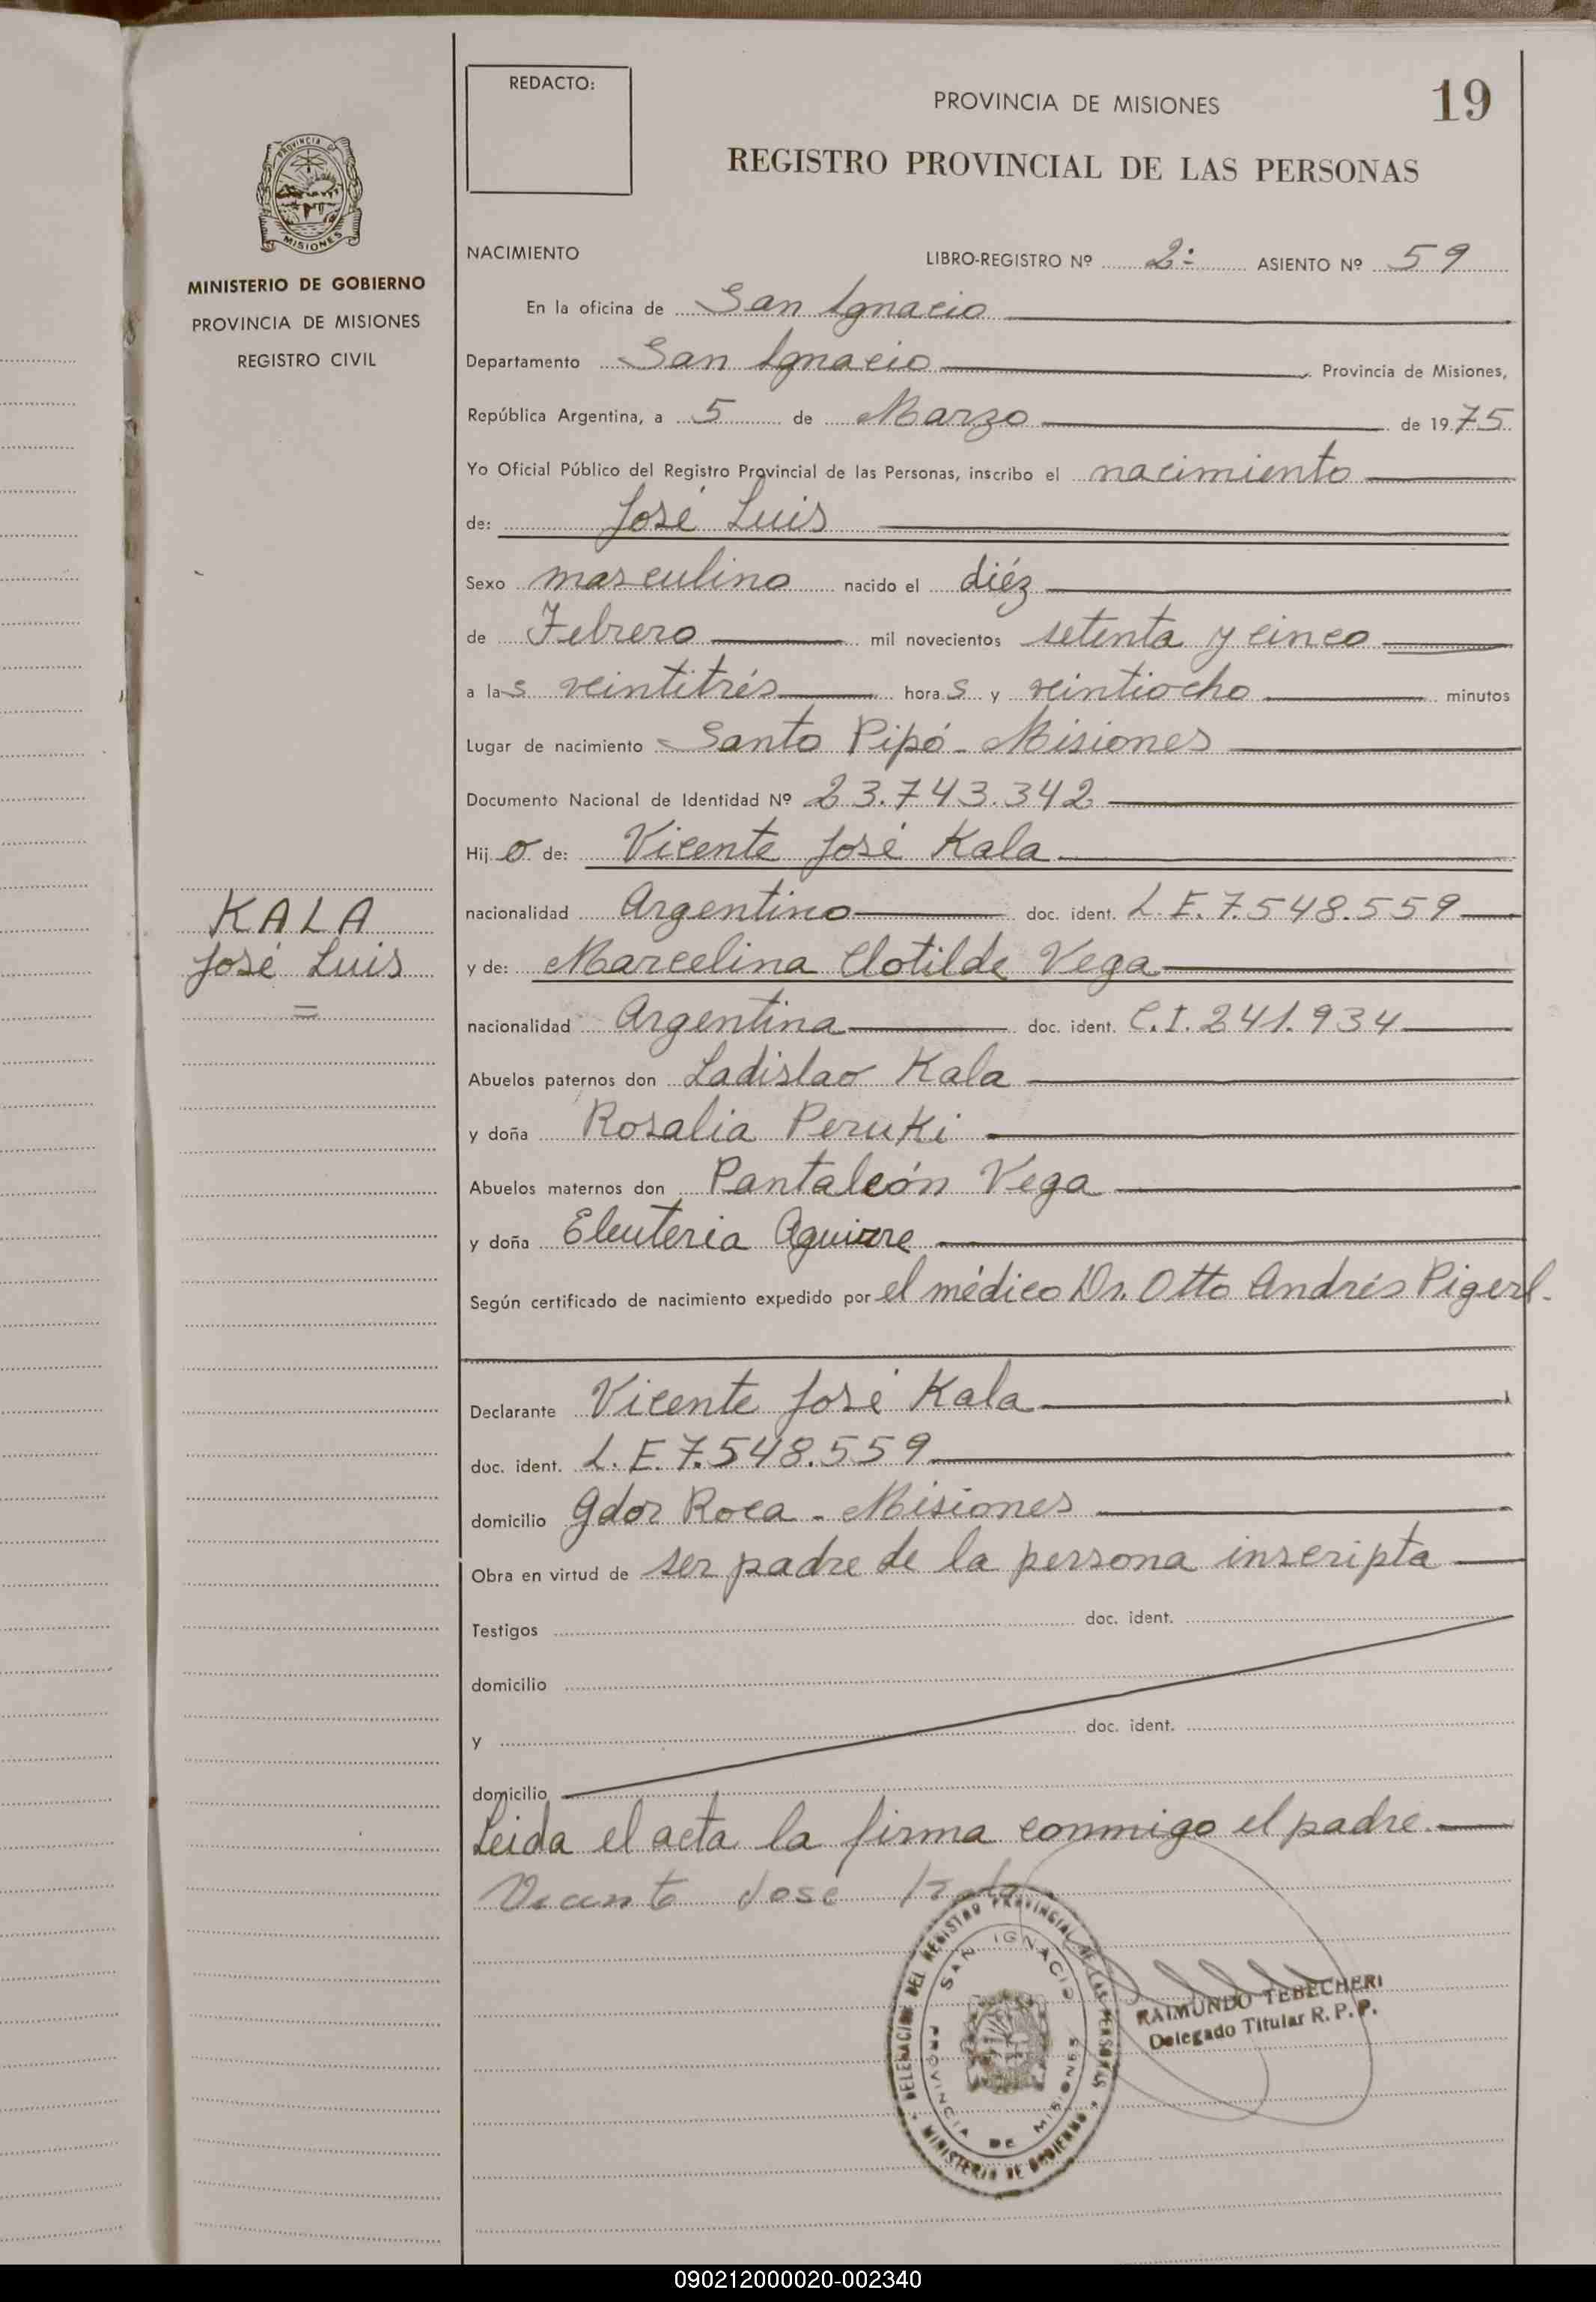 REDACTO:
PROVINCIA DE MISIONES
19
REGISTRO PROVINCIAL DE LAS PERSONAS
PROVINCIA D
MISIONES
MINISTERIO DE GOBIERNO
PROVINCIA DE MISIONES
REGISTRO CIVIL
NACIMIENTO LIBRO-REGISTRO Nº 2º ASIENTO Nº 59
En la oficina de San Ignacio
Departamento San Ignacio Provincia de Misiones,
República Argentina, a 5 de Marzo de 1975
Yo Oficial Público del Registro Provincial de las Personas, inscribo el nacimiento
de: José Luis
Sexo masculino nacido el diéz
de Febrero mil novecientos setenta y cinco
a las veintitrés horas y veintiocho minutos
Lugar de nacimiento Santo Pipó - Misiones
Documento Nacional de Identidad Nº 23.743.342
Hijo de: Vicente José Kala
nacionalidad Argentino doc. ident. L.E. 7.548.559
KALA
José Luis
=
y de: Marcelina Clotilde Vega
nacionalidad Argentina doc. ident. C.I. 241.934
Abuelos paternos don Ladislao Kala
y doña Rosalia Peruki
Abuelos maternos don Pantaleón Vega
y doña Eleuteria Aguirre
Según certificado de nacimiento expedido por el médico Dr. Otto Andrés Pigerl.
Declarante Vicente José Kala
doc. ident. L.E. 7.548.559
domicilio Gdor Roca - Misiones
Obra en virtud de ser padre de la persona inscripta
Testigos doc. ident.
domicilio
y doc. ident.
domicilio
Leida el acta la firma conmigo el padre.
Vicente José Kala
DELEGACION DEL REGISTRO PROVINCIAL DE LAS PERSONAS
SAN IGNACIO
PROVINCIA DE MISIONES
MINISTERIO DE GOBIERNO
RAIMUNDO TEBECHERI
Delegado Titular R. P. P.
090212000020-002340